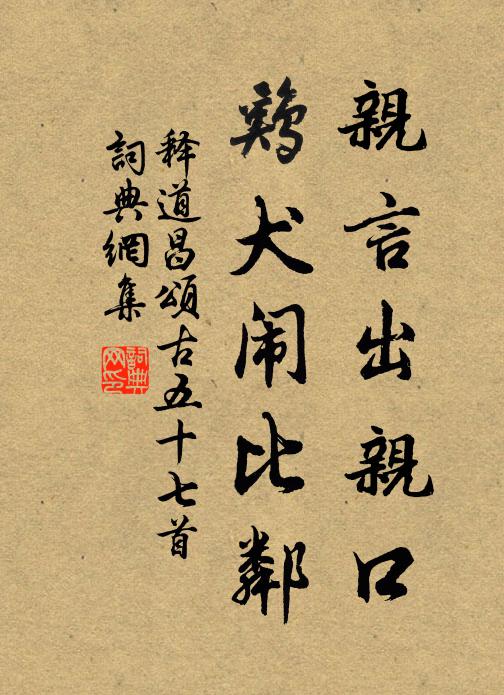 親言出親口
鷄犬闹比鄰
释道昌頌古五十七首
詞典網集
詞典网印